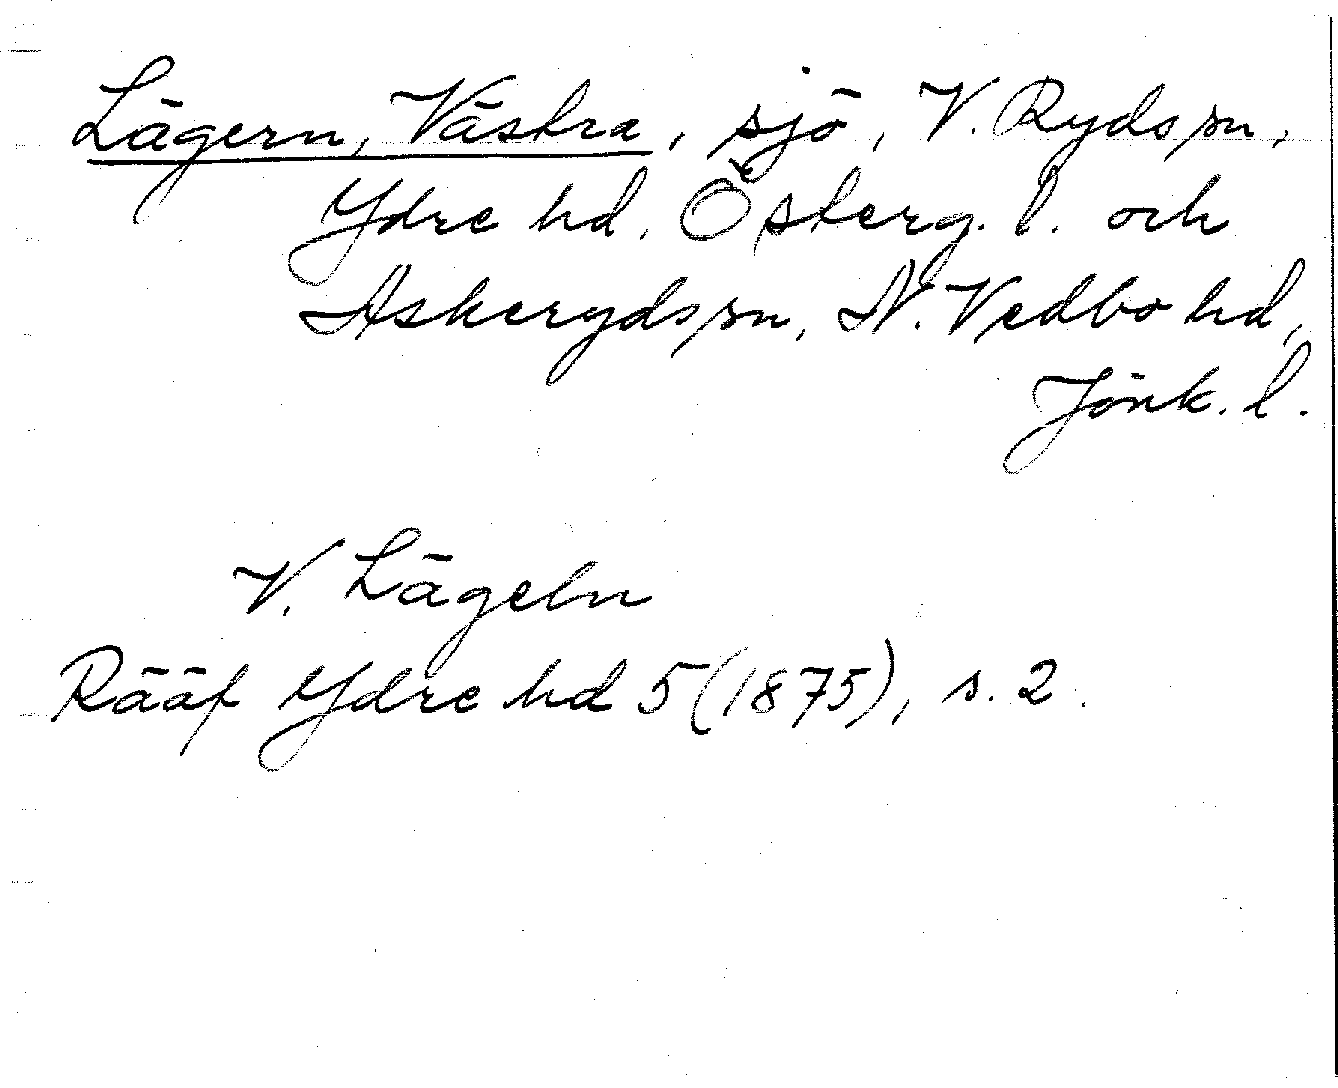 Lägern, Västra, sjö, V. Rydsn,
Ydre hd. Österg. l. och
Askerydssn, N. Vedbo hd,
Jönk. l.
V. Lägeln
Rääf Ydre hd 5 (1875), s. 2.